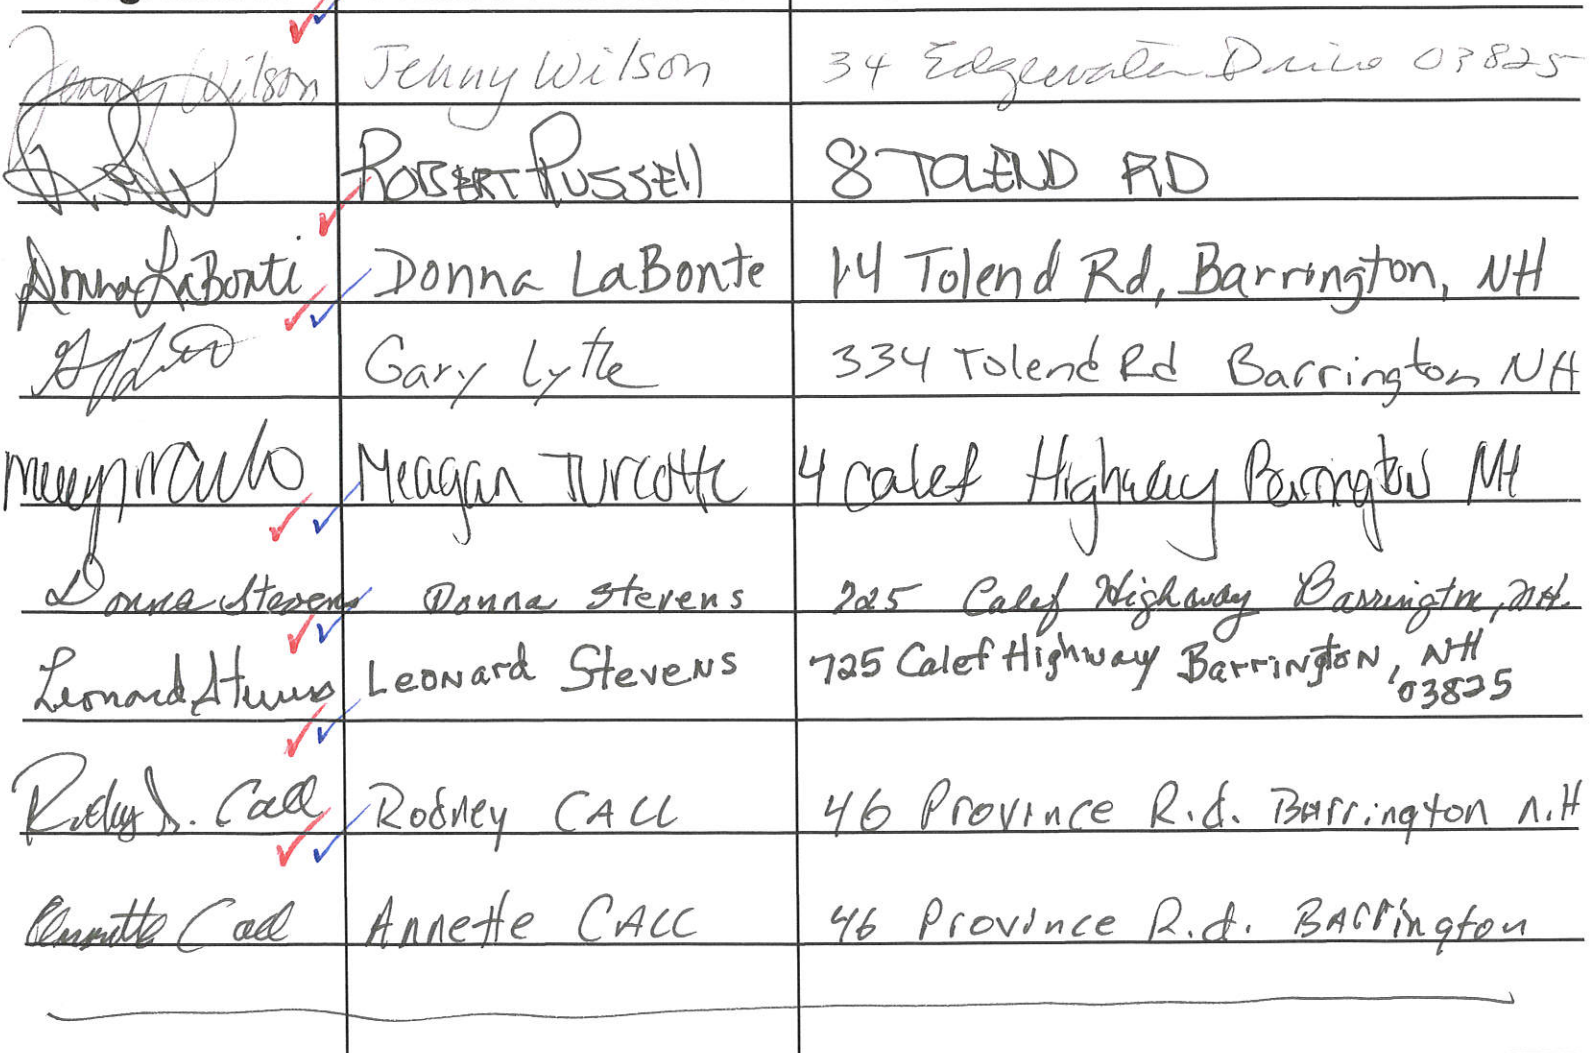 Jenny Wilson Jenny Wilson 34 Edgewater Drive 03825
ROBERT RUSSELL 8 TOLEND RD
Donna LaBonte Donna LaBonte 14 Tolend Rd, Barrington, NH
Gary Lytle 334 Tolend Rd Barrington NH
Meagan Turcotte 4 Calef Highway Barrington NH
Donna Stevens Donna Stevens 725 Calef Highway Barrington, NH.
Leonard Stevens Leonard Stevens 725 Calef Highway Barrington, NH
03825
Rodney D. Call Rodney CALL 46 Province R.d. Barrington N.H
Annette Call Annette CALL 46 Province R.d. BArrington